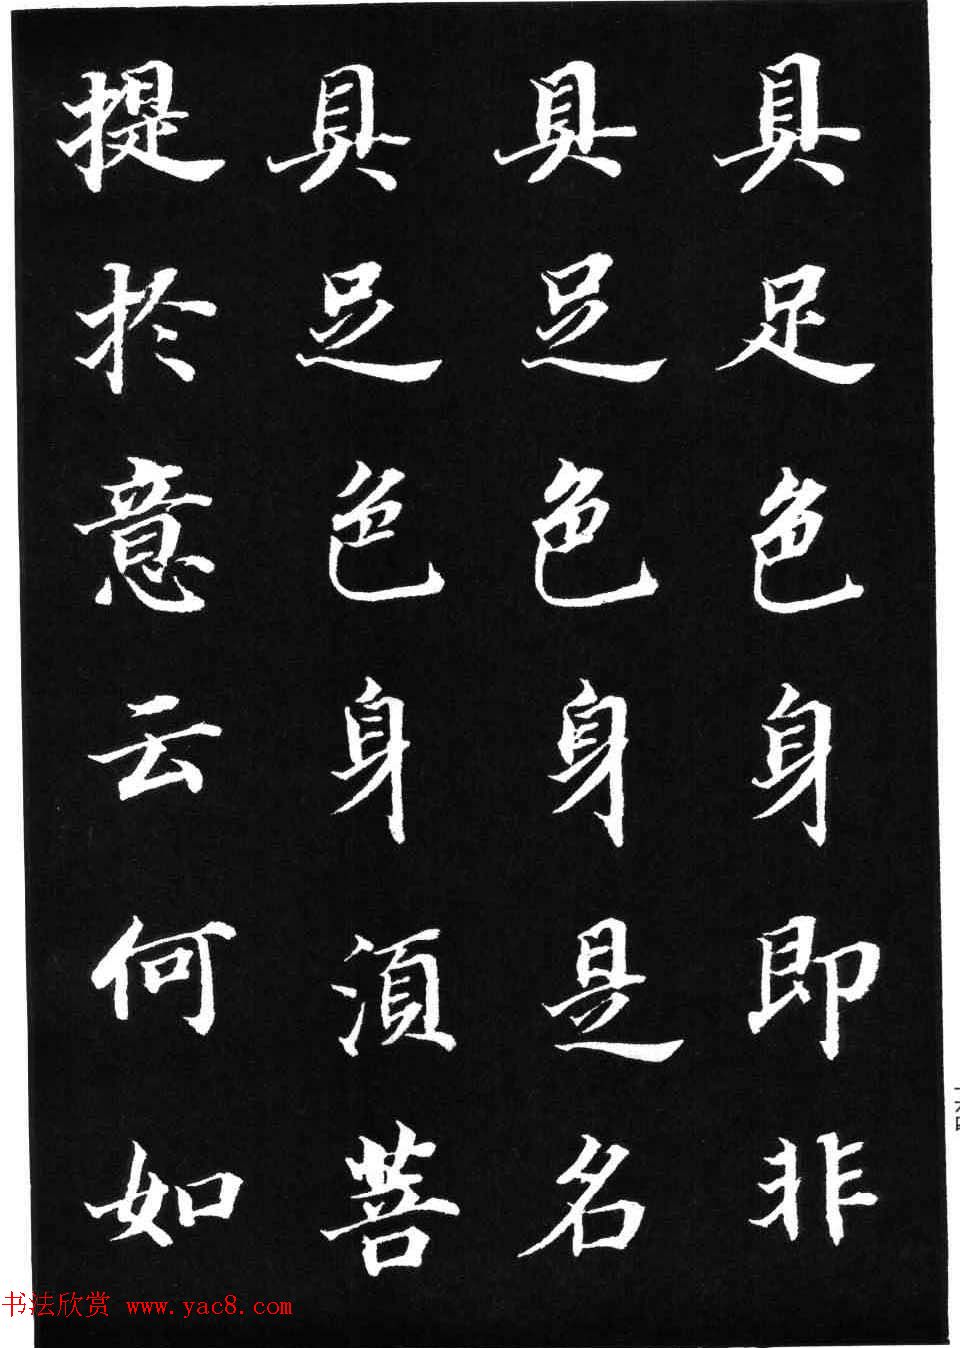 具足色身即非
具足色身是名
具足色身須菩
提於意云何如
书法欣赏 www.yac8.com